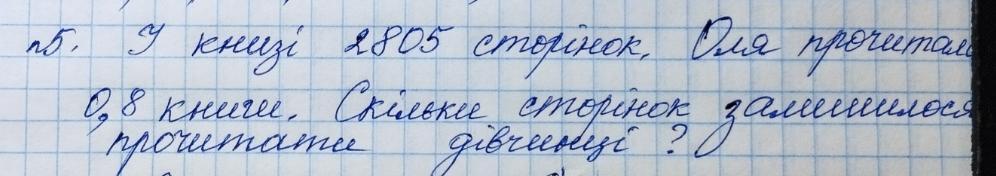 №5. У книзі 2805 сторінок. Оля прочитала
0,8 книги. Скільки сторінок залишилося
прочитати дівчинці?